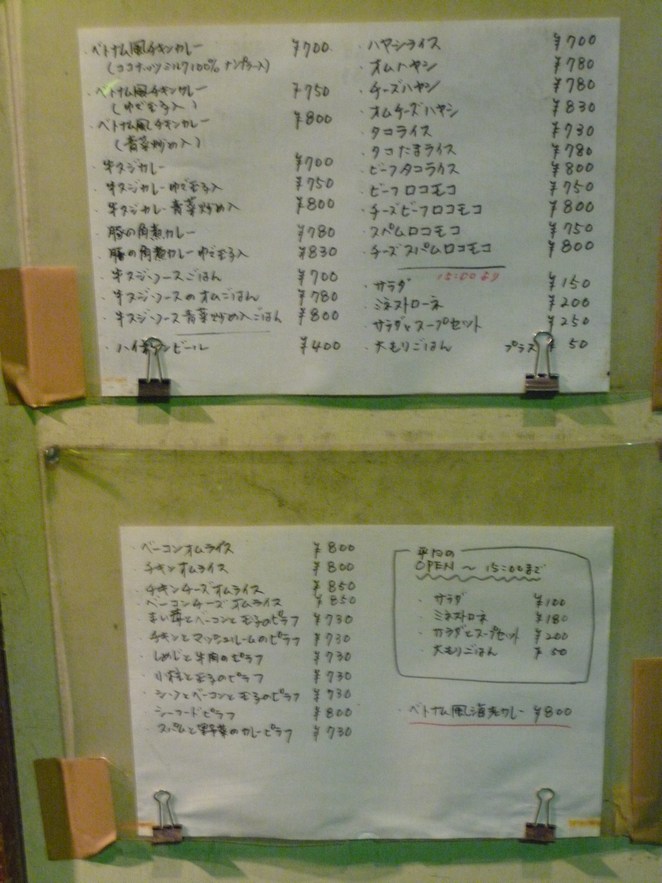 ・ベトナム風チキンカレー ¥700
(ココナッツミルク100% ナンプラー入)
・ベトナム風チキンカレー ¥750
(ゆで玉子入)
・ベトナム風チキンカレー ¥800
(青菜炒め入)
・牛スジカレー ¥700
・牛スジカレーゆで玉子入 ¥750
・牛スジカレー青菜炒め入 ¥800
・豚の角煮カレー ¥780
・豚の角煮カレーゆで玉子入 ¥830
・牛スジ・フースごはん ¥700
・牛スジ・フースのオムごはん ¥780
・牛スジ・フース青菜炒め入ごはん ¥800
・ビール ¥400
・ハヤシライス ¥700
・オムハヤシ ¥780
・チーズハヤシ ¥780
・オムチーズハヤシ ¥830
・タコライス ¥730
・タコたまライス ¥780
・ビーフタコライス ¥800
・ビーフロコモコ ¥750
・チーズビーフロコモコ ¥800
・スパムロコモコ ¥750
・チーズスパムロコモコ ¥800
15:00より
・サラダ ¥150
・ミネストローネ ¥200
・サラダとスープセット ¥250
・大もりごはん プラス ¥50
・ベーコンオムライス ¥800
チキンオムライス ¥800
チキンチーズオムライス ¥850
・ベーコンチーズオムライス ¥850
まい茸とベーコンと玉子のピラフ ¥730
チキンとマッシュルームのピラフ ¥730
しめじと牛肉のピラフ ¥730
玉子のピラフ ¥730
ベーコンと玉子のピラフ ¥730
シーフードピラフ ¥800
スパムと野菜のカレーピラフ ¥730
平日の
OPEN〜15:00まで
・サラダ ¥100
・ミネストロネ ¥180
・サラダとスープセット ¥200
・大もりごはん ¥50
・ベトナム風海老カレー ¥800